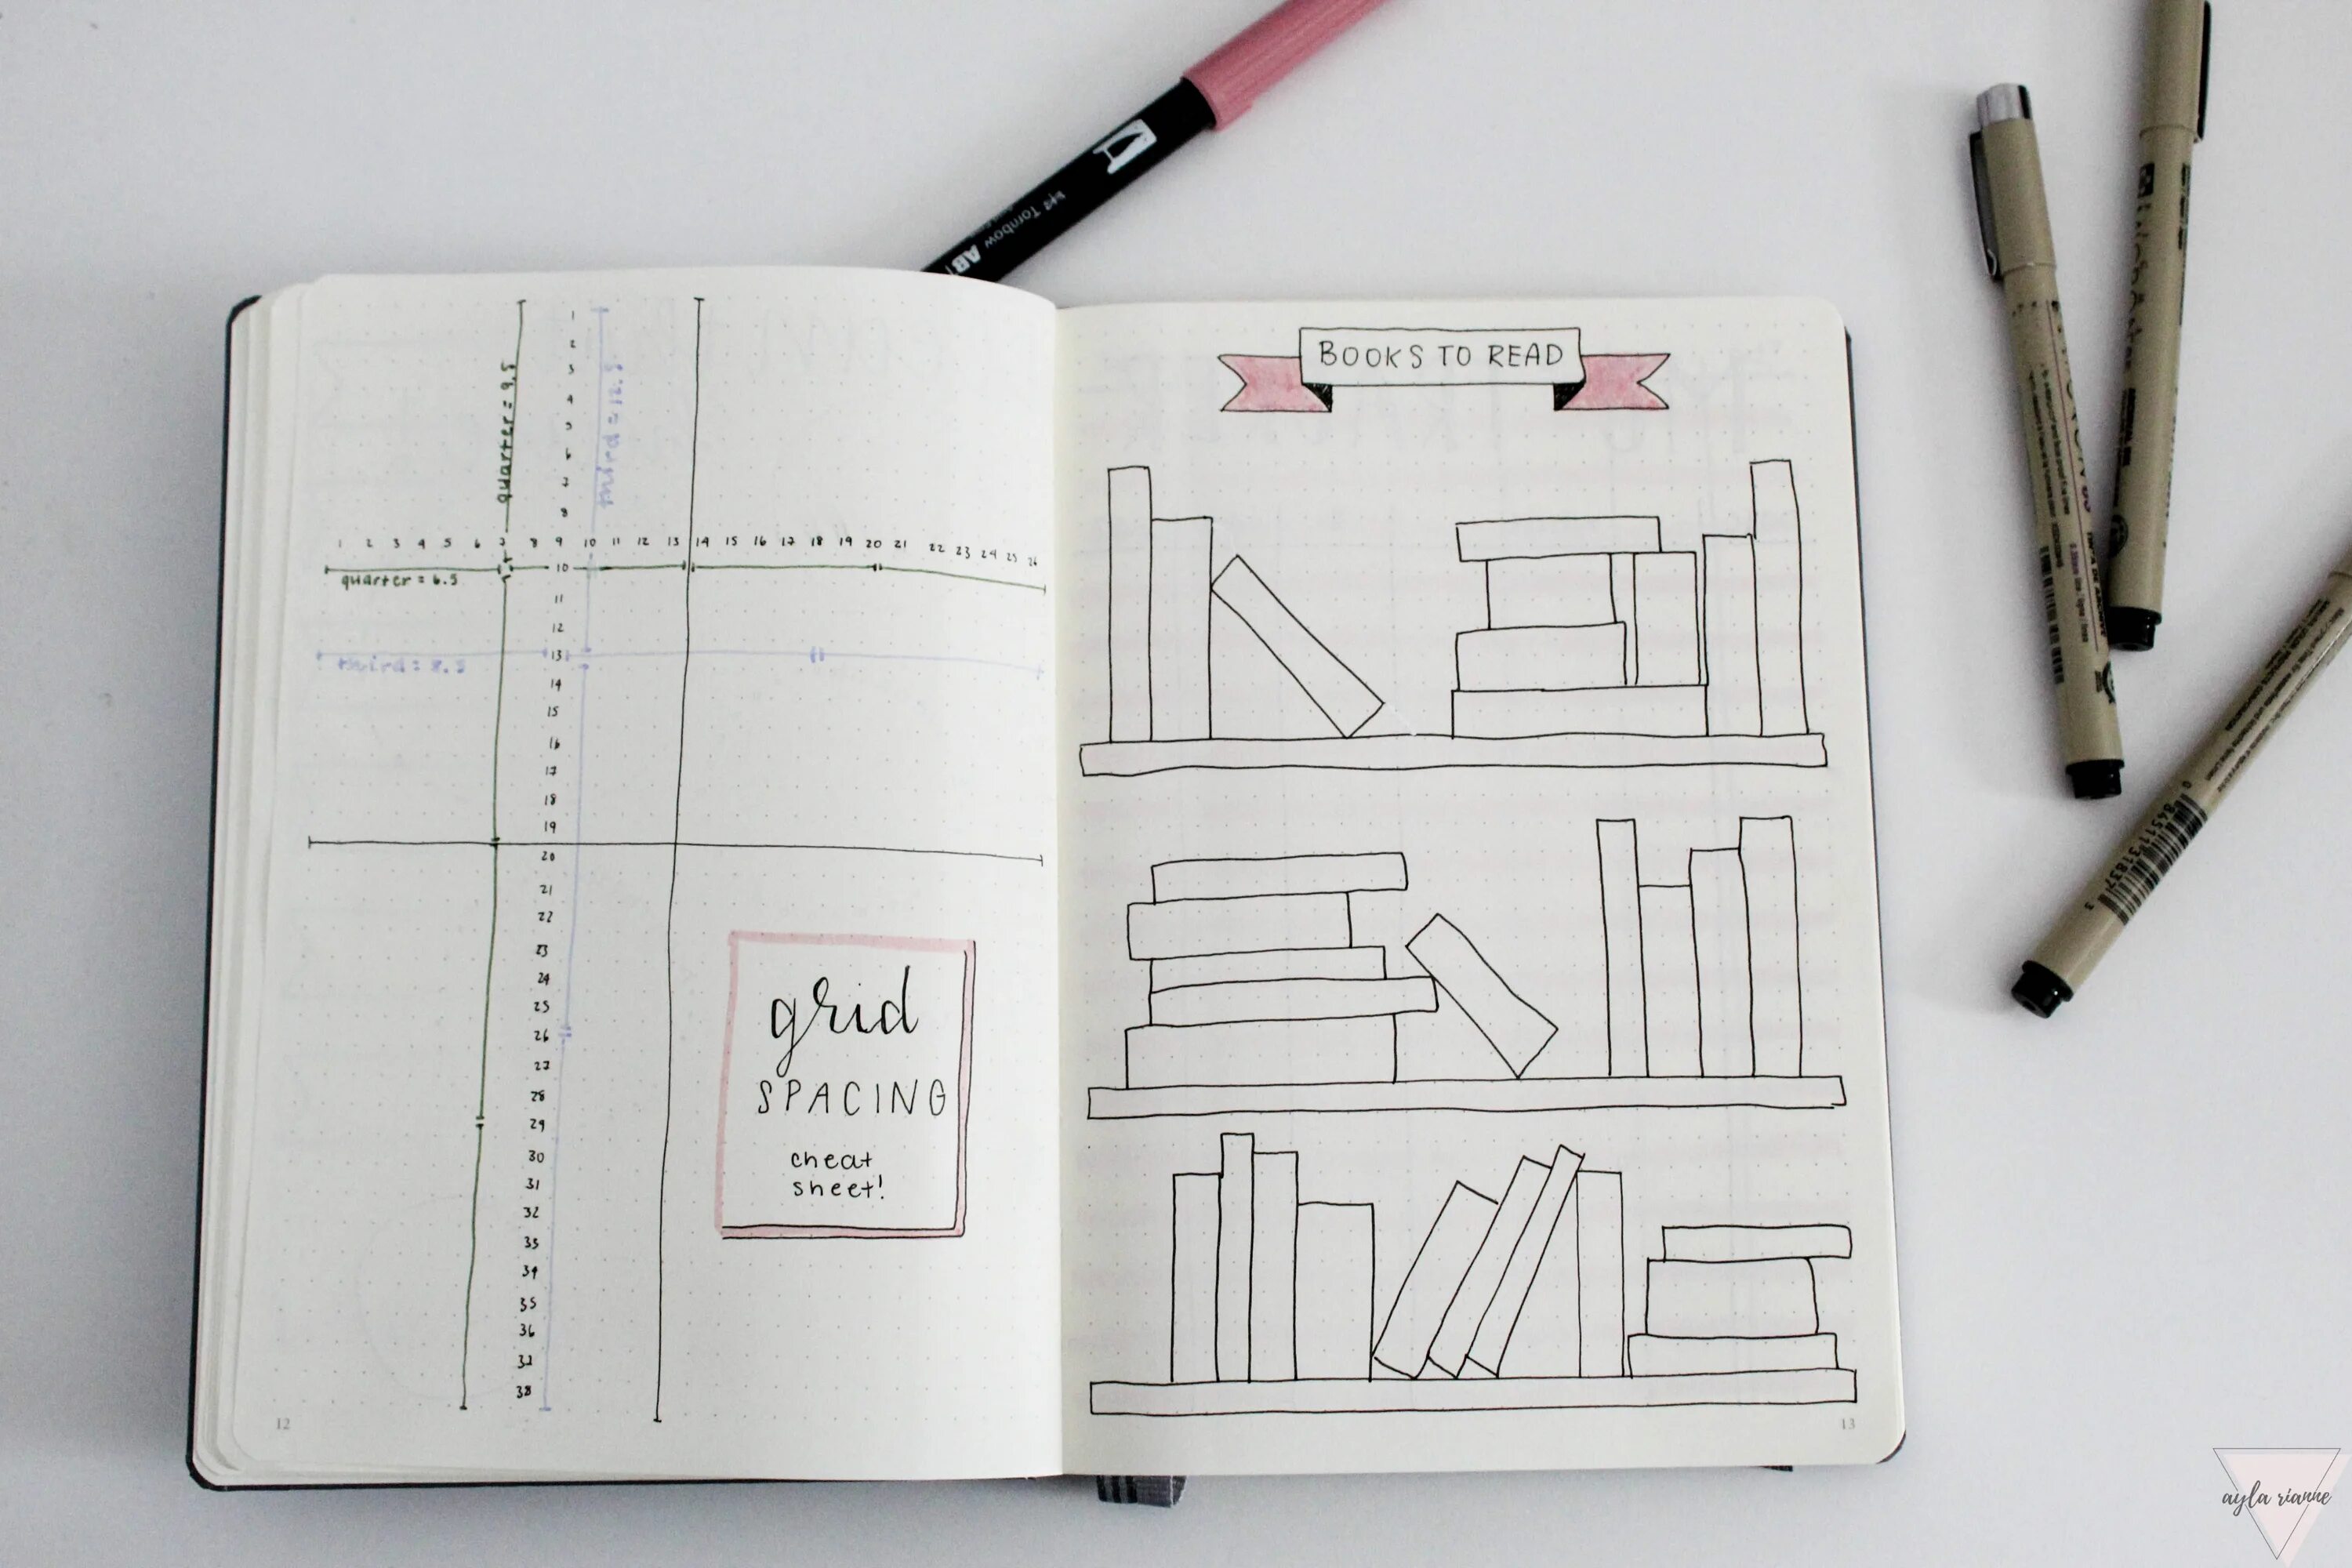 quarter = 9.5
third = 12.5
1
2
3
4
5
6
7
8
1 2 3 4 5 6 7 8 9 10 11 12 13 14 15 16 17 18 19 20 21 22 23 24 25 26
10
quarter = 6.5
11
12
13
third = 8.5
14
15
16
17
18
19
20
21
22
23
24
25
26
27
28
29
30
31
32
33
34
35
36
37
38
grid
SPACING
cheat
sheet!
12
BOOKS TO READ
13
Tombow
ayla rianne